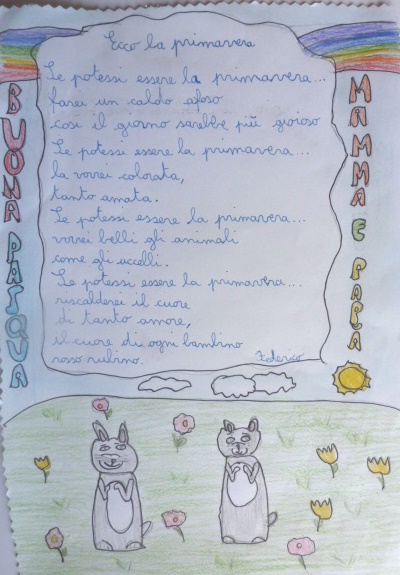 Ecco la primavera
Se potessi essere la primavera...
farei un caldo afoso
così il giorno sarebbe più gioioso
Se potessi essere la primavera...
la vorrei colorata,
tanto amata.
Se potessi essere la primavera...
vorrei belli gli animali
come gli uccelli.
Se potessi essere la primavera...
riscalderei il cuore
di tanto amore,
il cuore di ogni bambino
rosso rubino.
Federico
BUONA PASQUA
MAMMA E PAPA